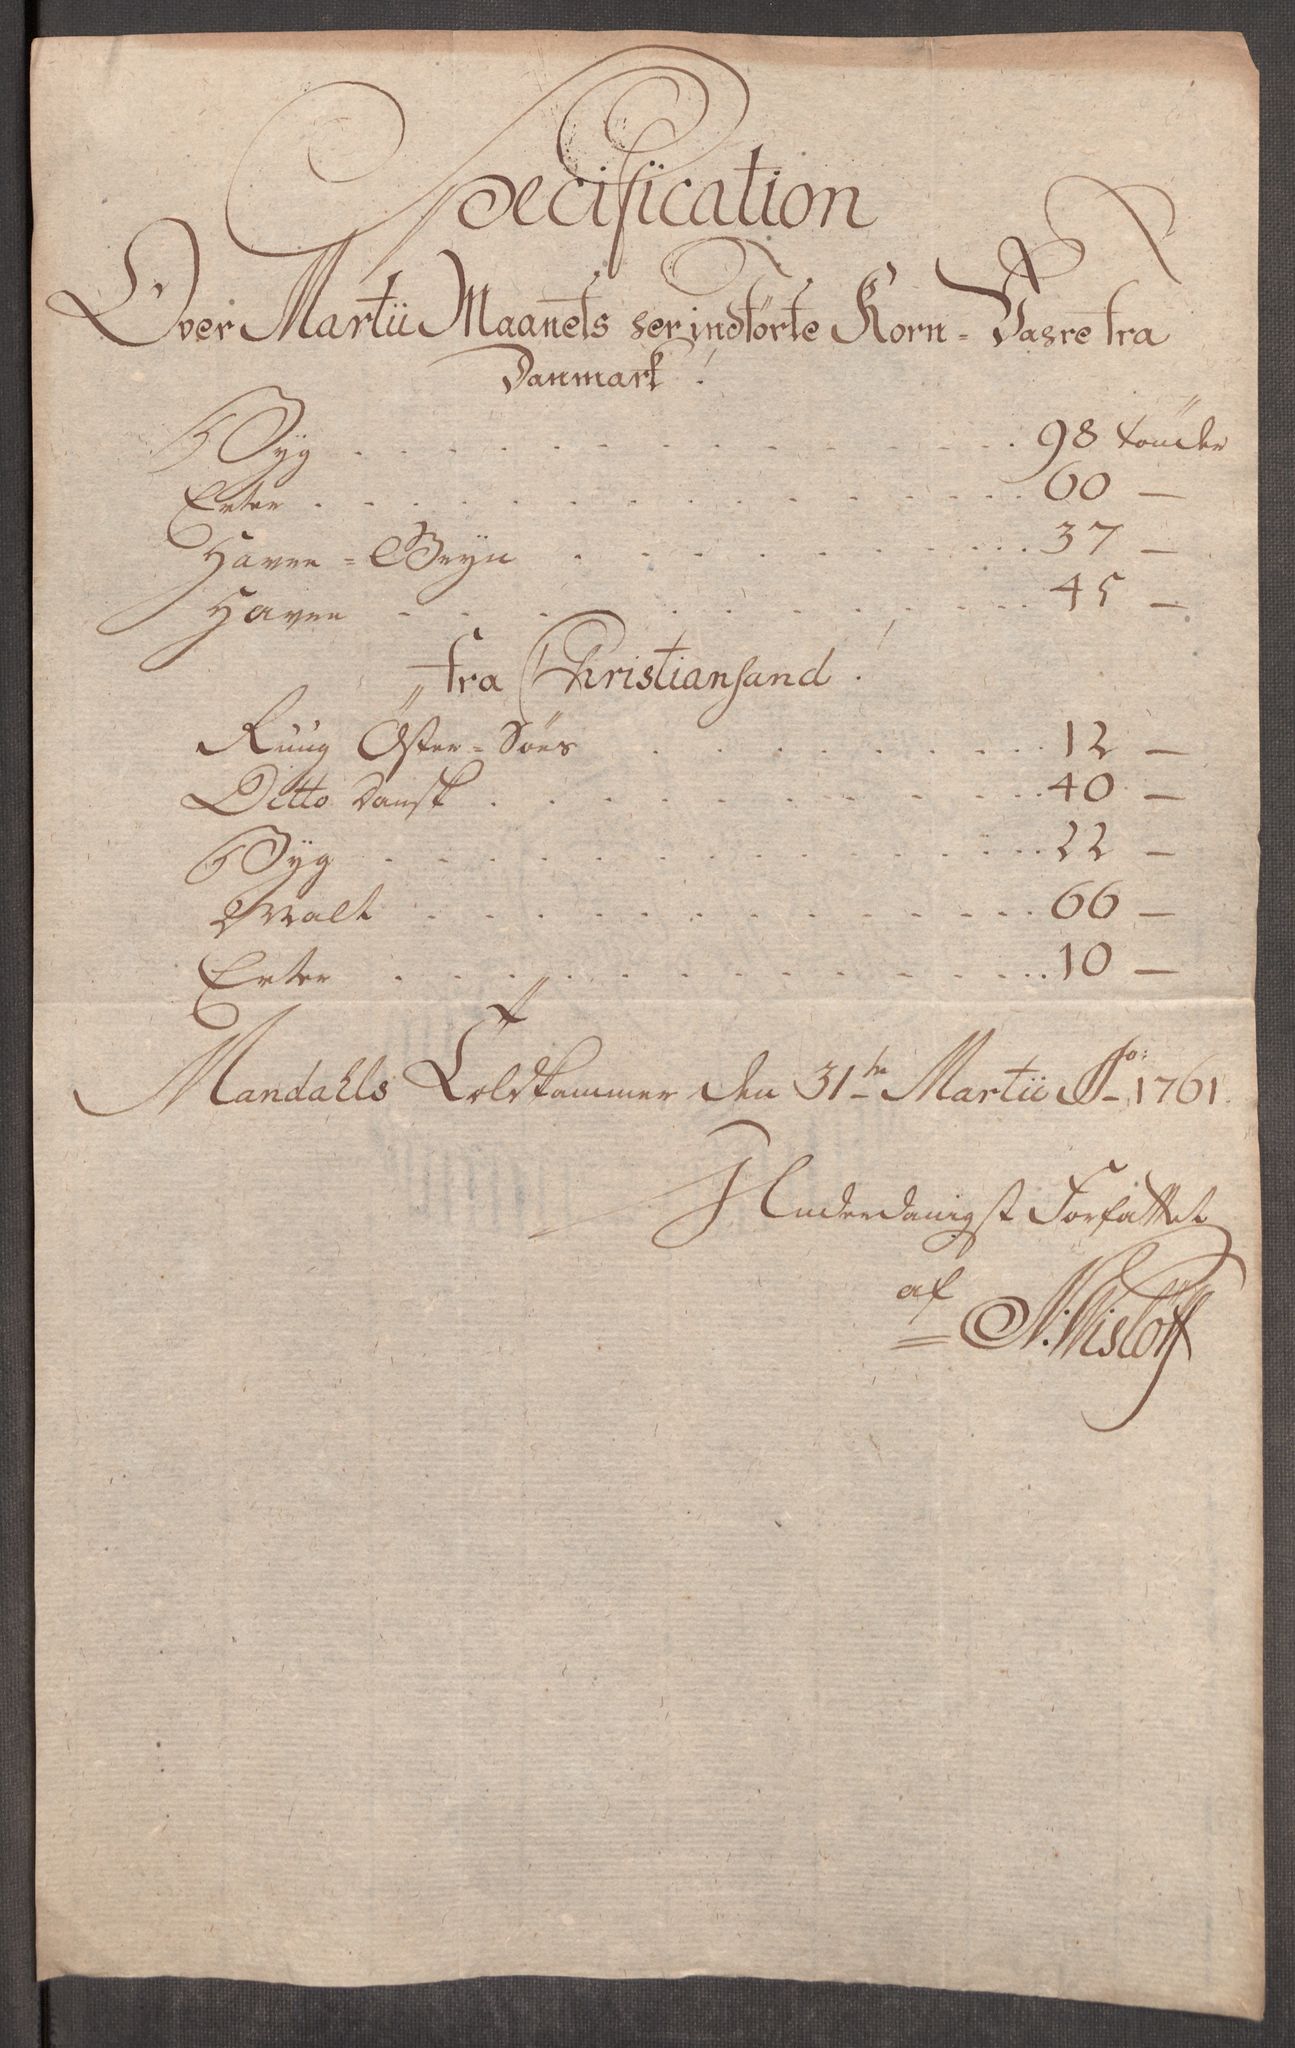 Specification
Over Martii Maanets her indförte Korn-Vahre fra
Danmark.
Byg 98 tönder
Erter 60 —
Havre-Gryn 37 —
Havre 45 —
fra Christiansand.
Ruug Öster-Söes 12 —
Ditto Dansk 40 —
Byg 22 —
Malt 66 —
Erter 10 —
Mandahls Toldkammer den 31te Martii Ao: 1761.
Underdanigst Forfattet
af N: Wislöff